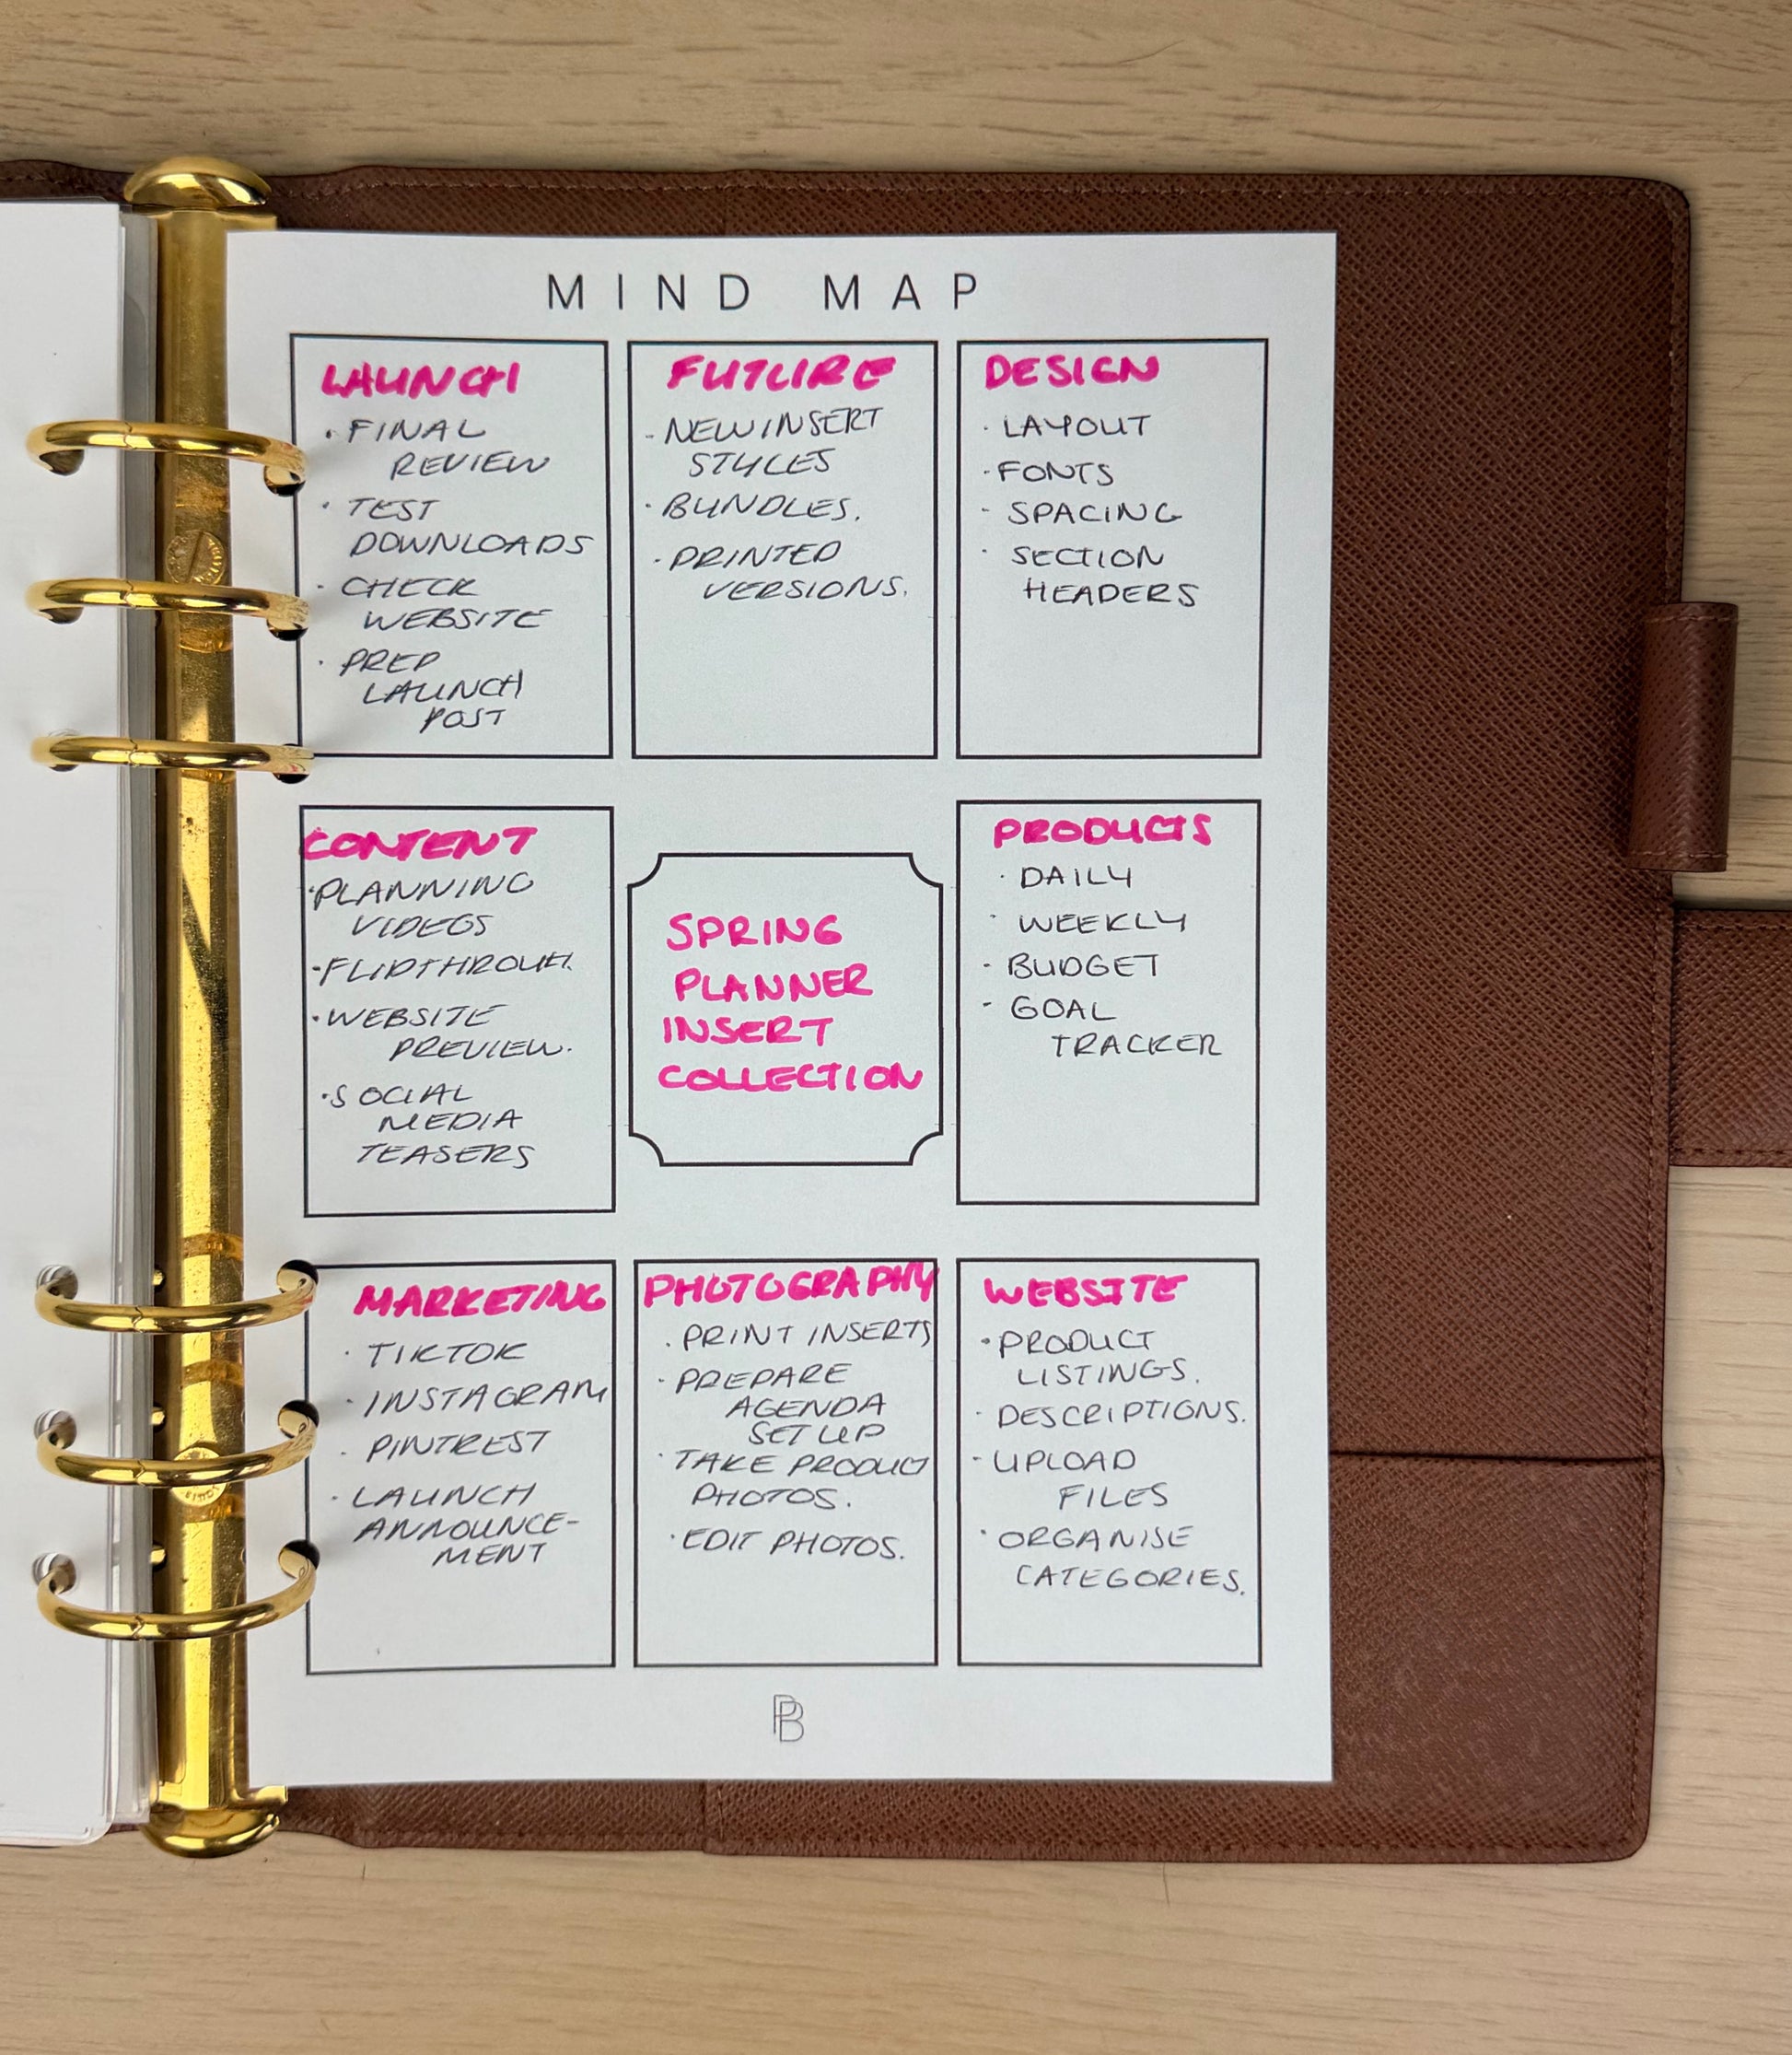 MIND MAP
LAUNCH
· FINAL
REVIEW
· TEST
DOWNLOADS
· CHECK
WEBSITE
· PREP
LAUNCH
POST
FUTURE
- NEW INSERT
STYLES
· BUNDLES.
· PRINTED
VERSIONS.
DESIGN
· LAYOUT
· FONTS
- SPACING
· SECTION
HEADERS
CONTENT
· PLANNING
VIDEOS
- FLIPTHROUGH
· WEBSITE
PREVIEW.
· SOCIAL
MEDIA
TEASERS
SPRING
PLANNER
INSERT
COLLECTION
PRODUCTS
· DAILY
· WEEKLY
- BUDGET
- GOAL
TRACKER
MARKETING
· TIKTOK
· INSTAGRAM
· PINTREST
· LAUNCH
ANNOUNCE-
MENT
PHOTOGRAPHY
· PRINT INSERTS
· PREPARE
AGENDA
SET UP
· TAKE PRODUCT
PHOTOS.
· EDIT PHOTOS.
WEBSITE
· PRODUCT
LISTINGS.
· DESCRIPTIONS.
- UPLOAD
FILES
· ORGANISE
CATEGORIES.
PB